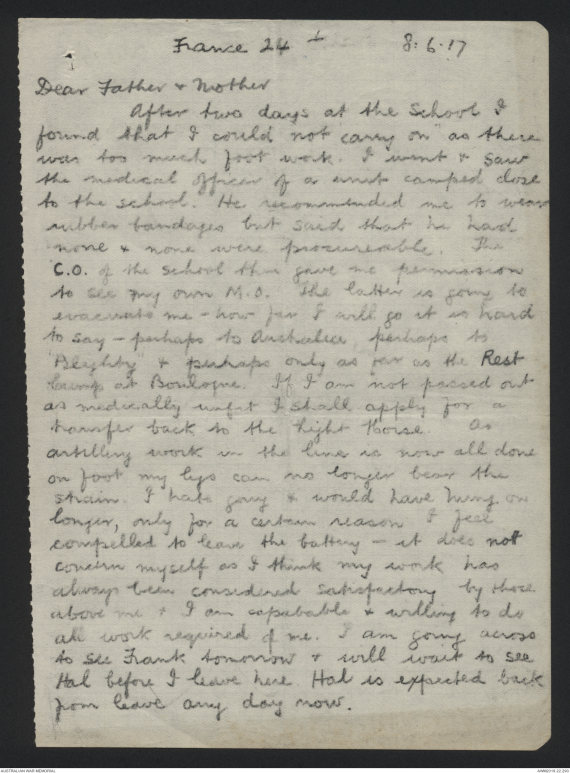 France 24 8.6.17
Dear Father & Mother
After two days at the School I
found that I could not carry on as there
was too much foot work. I went & saw
the medical officer of a unit camped close
to the school. He recommended me to wear
rubber bandages but said that he had
none & none were procureable. The
C.O. of the school then gave me permission
to see my own M.O. The latter is going to
evacuate me - how far I will go it is hard
to say - perhaps to Australia, perhaps to
"Blighty" & perhaps only as far as the Rest
Camp at Boulogne. If I am not passed out
as medically unfit I shall apply for a
transfer back to the Light Horse. As
artillery work in the line is now all done
on foot my legs can no longer bear the
strain. I hate going & would have hung on
longer, only for a certain reason I feel
compelled to leave the battery - it does not
concern myself as I think my work has
always been considered satisfactory by those
above me & I am capabable & willing to do
all work required of me. I am going across
to see Frank tomorrow & will wait to see
Hal before I leave here. Hal is expected back
from leave any day now.
AUSTRALIAN WAR MEMORIAL